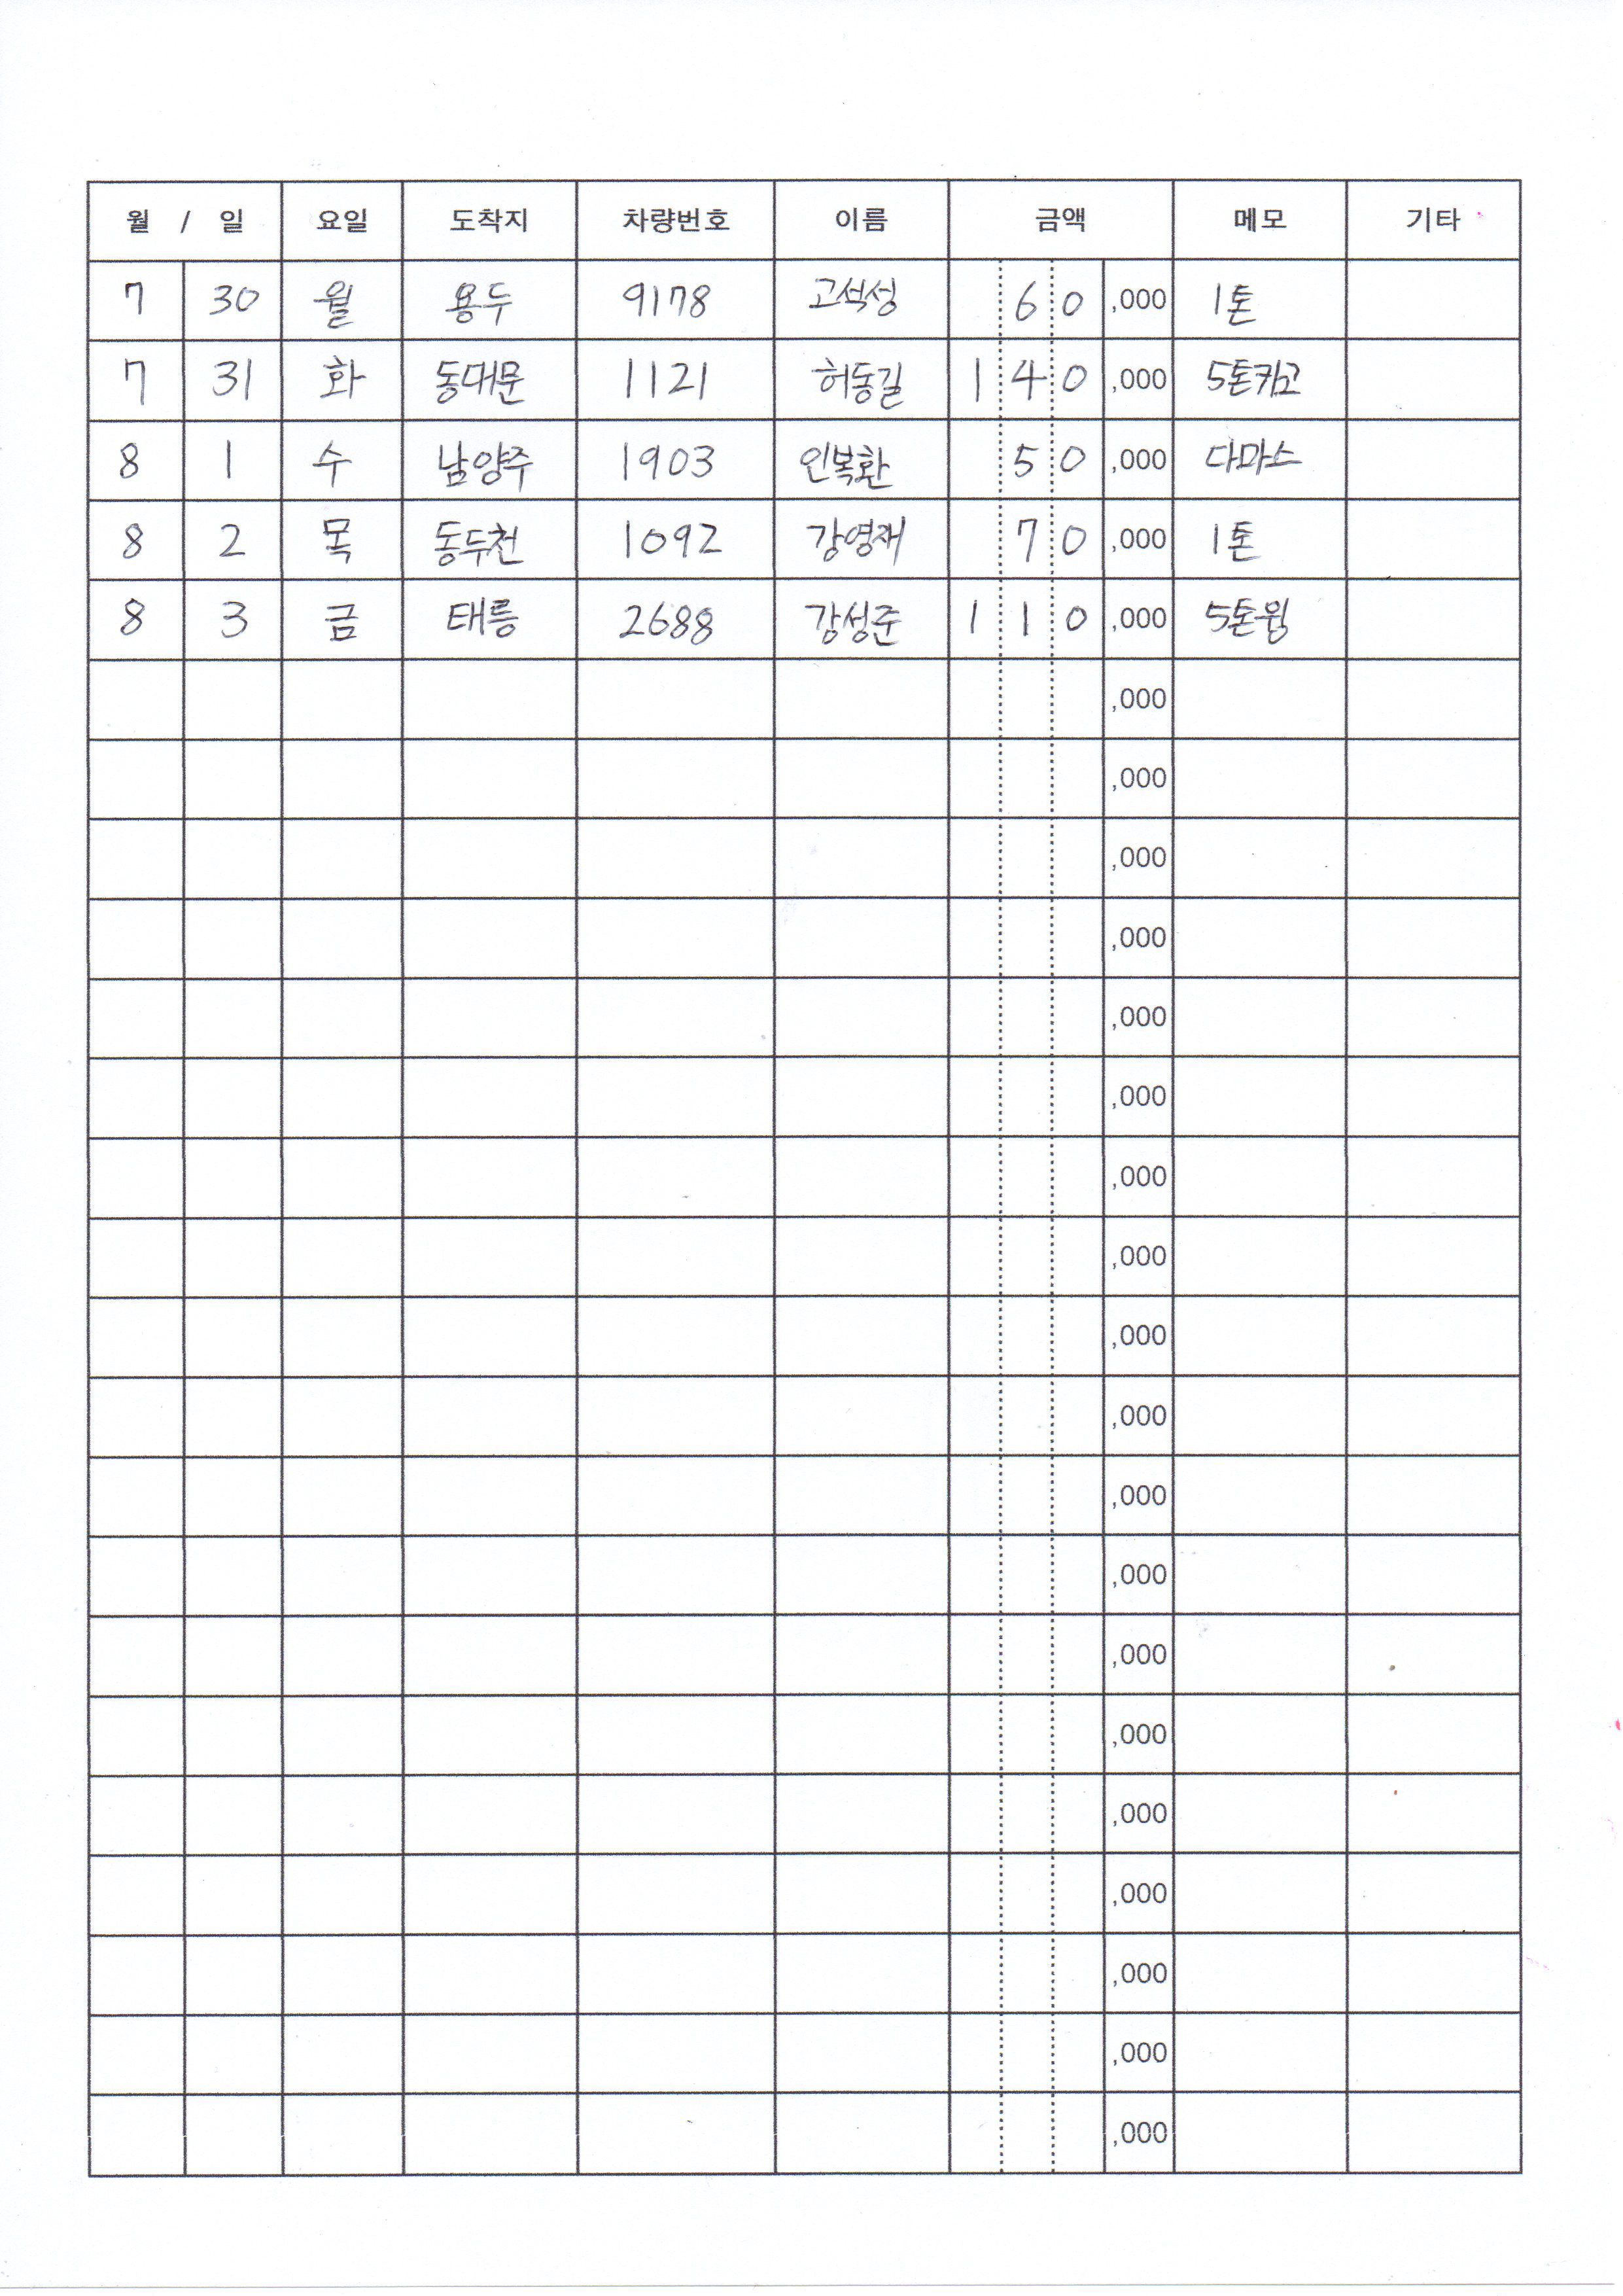 월 / 일 요일 도착지 차량번호 이름 금액 메모 기타
7 30 월 용두 9178 고석성 60 ,000 1톤
7 31 화 동대문 1121 허동길 140 ,000 5톤카고
8 1 수 남양주 1903 인복환 50 ,000 다마스
8 2 목 동두천 1092 강영재 70 ,000 1톤
8 3 금 태릉 2688 강성준 110 ,000 5톤윙
,000
,000
,000
,000
,000
,000
,000
,000
,000
,000
,000
,000
,000
,000
,000
,000
,000
,000
,000